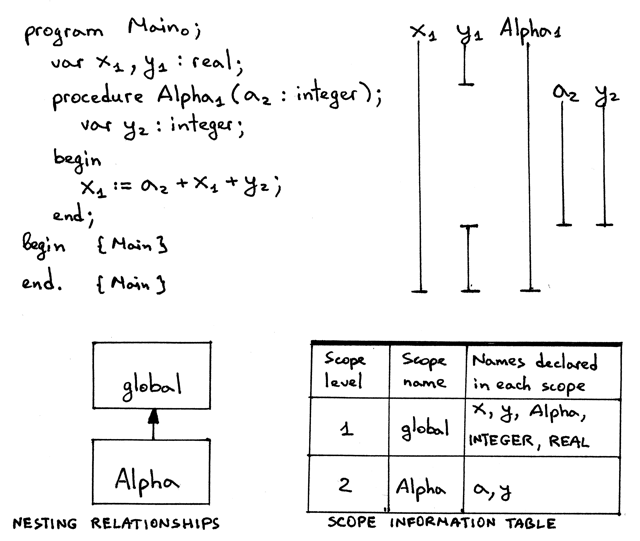 program Main₀;
var x₁, y₁ : real;
procedure Alpha₁ (a₂ : integer);
var y₂ : integer;
begin
x₁ := a₂ + x₁ + y₂;
end;
begin {Main}
end. {Main}
x₁ y₁ Alpha₁
a₂ y₂
global
Alpha
NESTING RELATIONSHIPS
Scope level
Scope name
Names declared in each scope
1
global
x, y, Alpha,
INTEGER, REAL
2
Alpha
a, y
SCOPE INFORMATION TABLE